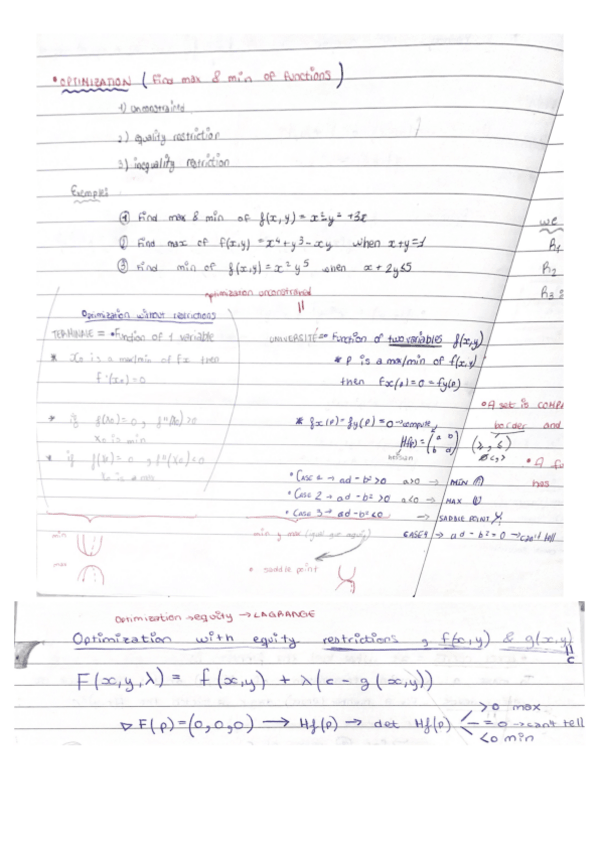 • OPTIMIZATION (Find max & min of functions)
1) unconstrained
2) equality restriction
3) inequality restriction
Examples
① Find max & min of f(x,y) = x² - y² + 3x
② Find max of f(x,y) = x⁴ + y³ - xy when x+y=1
③ Find min of f(x,y) = x² y⁵ when x + 2y ≤ 5
we
R₁
R₂
optimization unconstrained
Optimization without restrictions
TERMINALE = • Function of 1 variable
* x₀ is a max/min of fx then
f'(x₀) = 0
* if f(x₀)=0, f''(x₀)>0
x₀ is min
* if f(x₀)=0, f''(x₀)<0
x₀ is max
min
max
UNIVERSITÉ = Function of two variables f(x,y)
* P is a max/min of f(x,y)
then fx(p)=0=fy(p)
* fx(p)=fy(p)=0 → compute
Hf(p) = (a b
b d)
hessian
• CASE 1 → ad - b² > 0 a>0 → MIN
• CASE 2 → ad - b² > 0 a<0 → MAX
• CASE 3 → ad - b² < 0 → SADDLE POINT
CASE 4 → ad - b² = 0 → can't tell
min y max
• saddle point
• A set is COMPA
border and
• A fu
has
Optimization → equity → LAGRANGE
Optimization with equity restrictions, f(x,y) & g(x,y)
= c
F(x,y,λ) = f(x,y) + λ(c - g(x,y))
▷ F(p) = (0,0,0) → Hf(p) → det Hf(p)
>0 max
=0 → can't tell
<0 min